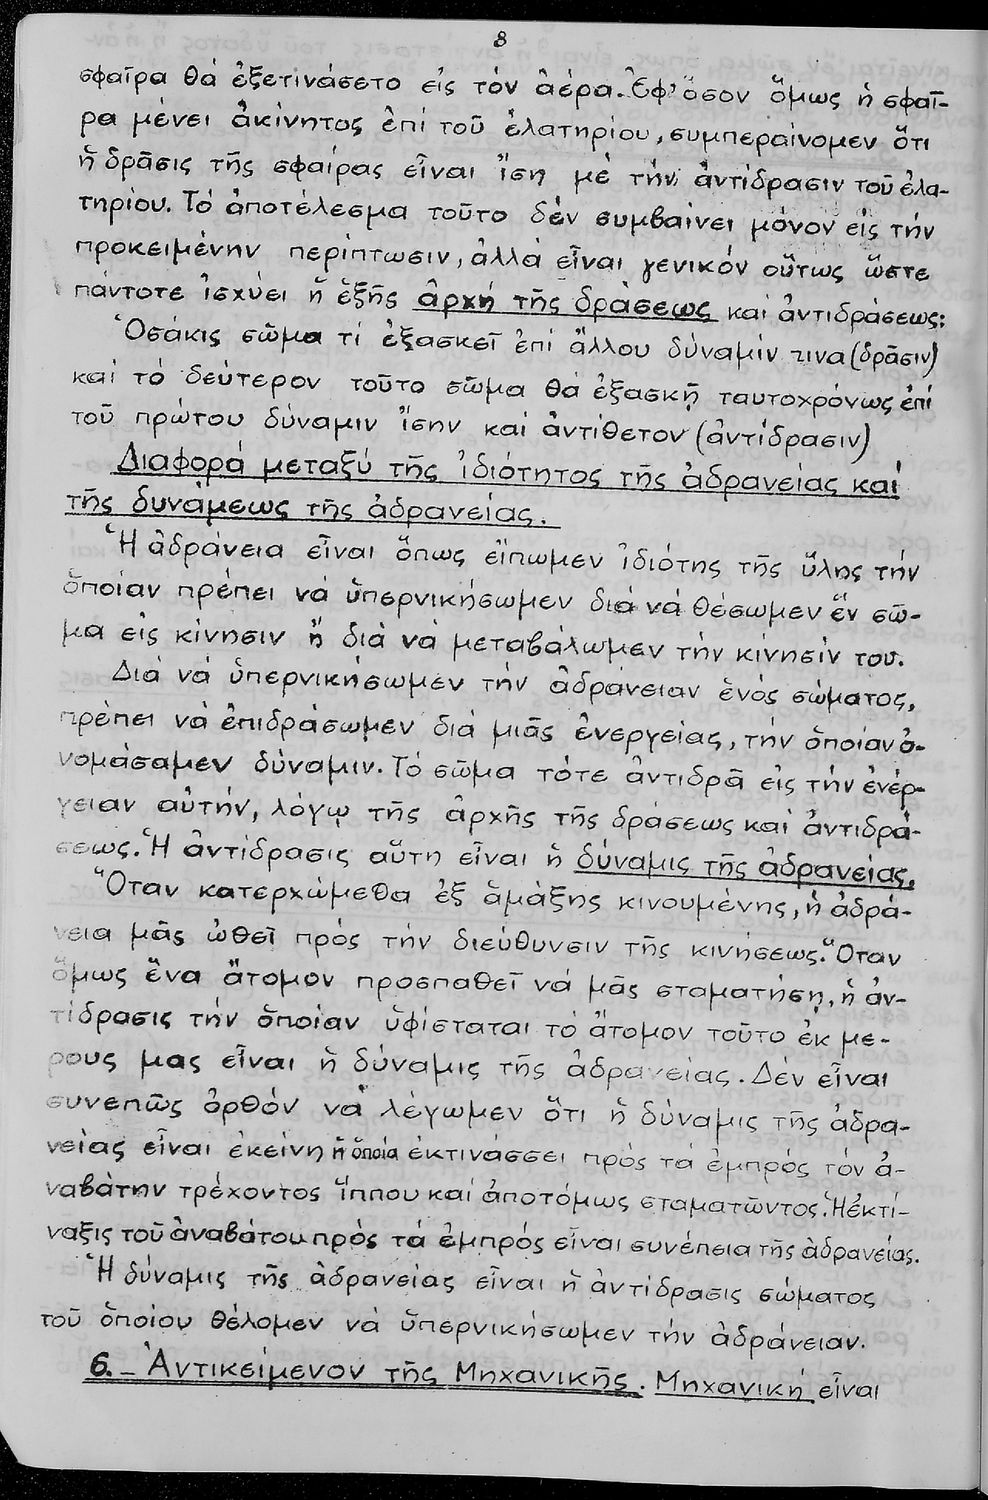 8
σφαῖρα θά ἐξετινάσετο εἰς τόν ἀέρα. Ἐφ' ὅσον ὅμως ἡ σφαῖ-
ρα μένει ἀκίνητος ἐπί τοῦ ἐλατηρίου, συμπεραίνομεν ὅτι
ἡ δρᾶσις τῆς σφαίρας εἶναι ἴση μέ τήν ἀντίδρασιν τοῦ ἐλα-
τηρίου. Τό ἀποτέλεσμα τοῦτο δέν συμβαίνει μόνον εἰς τήν
προκειμένην περίπτωσιν, ἀλλά εἶναι γενικόν οὕτως ὥστε
πάντοτε ἰσχύει ἡ ἑξῆς ἀρχή τῆς δράσεως καί ἀντιδράσεως:
Ὁσάκις σῶμα τί ἐξασκεῖ ἐπί ἄλλου δύναμίν τινα (δρᾶσιν)
καί τό δεύτερον τοῦτο σῶμα θά ἐξασκῇ ταυτοχρόνως ἐπί
τοῦ πρώτου δύναμιν ἴσην καί ἀντίθετον (ἀντίδρασιν)
Διαφορά μεταξύ τῆς ἰδιότητος τῆς ἀδρανείας καί
τῆς δυνάμεως τῆς ἀδρανείας.
Ἡ ἀδράνεια εἶναι ὅπως εἴπωμεν ἰδιότης τῆς ὕλης τήν
ὁποίαν πρέπει νά ὑπερνικήσωμεν διά νά θέσωμεν ἕν σῶ-
μα εἰς κίνησιν ἤ διά νά μεταβάλωμεν τήν κίνησίν του.
Διά νά ὑπερνικήσωμεν τήν ἀδράνειαν ἑνός σώματος,
πρέπει νά ἐπιδράσωμεν διά μιᾶς ἐνεργείας, τήν ὁποίαν ὀ-
νομάσαμεν δύναμιν. Τό σῶμα τότε ἀντιδρᾶ εἰς τήν ἐνέρ-
γειαν αὐτήν, λόγῳ τῆς ἀρχῆς τῆς δράσεως καί ἀντιδρά-
σεως. Ἡ ἀντίδρασις αὕτη εἶναι ἡ δύναμις τῆς ἀδρανείας.
Ὅταν κατερχώμεθα ἐξ ἁμάξης κινουμένης, ἡ ἀδρά-
νεια μᾶς ὠθεῖ πρός τήν διεύθυνσιν τῆς κινήσεως. Ὅταν
ὅμως ἕνα ἄτομον προσπαθεῖ νά μᾶς σταματήσῃ, ἡ ἀν-
τίδρασις τήν ὁποίαν ὑφίσταται τό ἄτομον τοῦτο ἐκ μέ-
ρους μας εἶναι ἡ δύναμις τῆς ἀδρανείας. Δέν εἶναι
συνεπῶς ὀρθόν νά λέγωμεν ὅτι ἡ δύναμις τῆς ἀδρα-
νείας εἶναι ἐκείνη ἡ ὁποία ἐκτινάσσει πρός τά ἐμπρός τόν ἀ-
ναβάτην τρέχοντος ἵππου καί ἀποτόμως σταματῶντος. Ἡ ἐκτί-
ναξις τοῦ ἀναβάτου πρός τά ἐμπρός εἶναι συνέπεια τῆς ἀδρανείας.
Ἡ δύναμις τῆς ἀδρανείας εἶναι ἡ ἀντίδρασις σώματος
τοῦ ὁποίου θέλομεν νά ὑπερνικήσωμεν τήν ἀδράνειαν.
6.- Ἀντικείμενον τῆς Μηχανικῆς. Μηχανική εἶναι